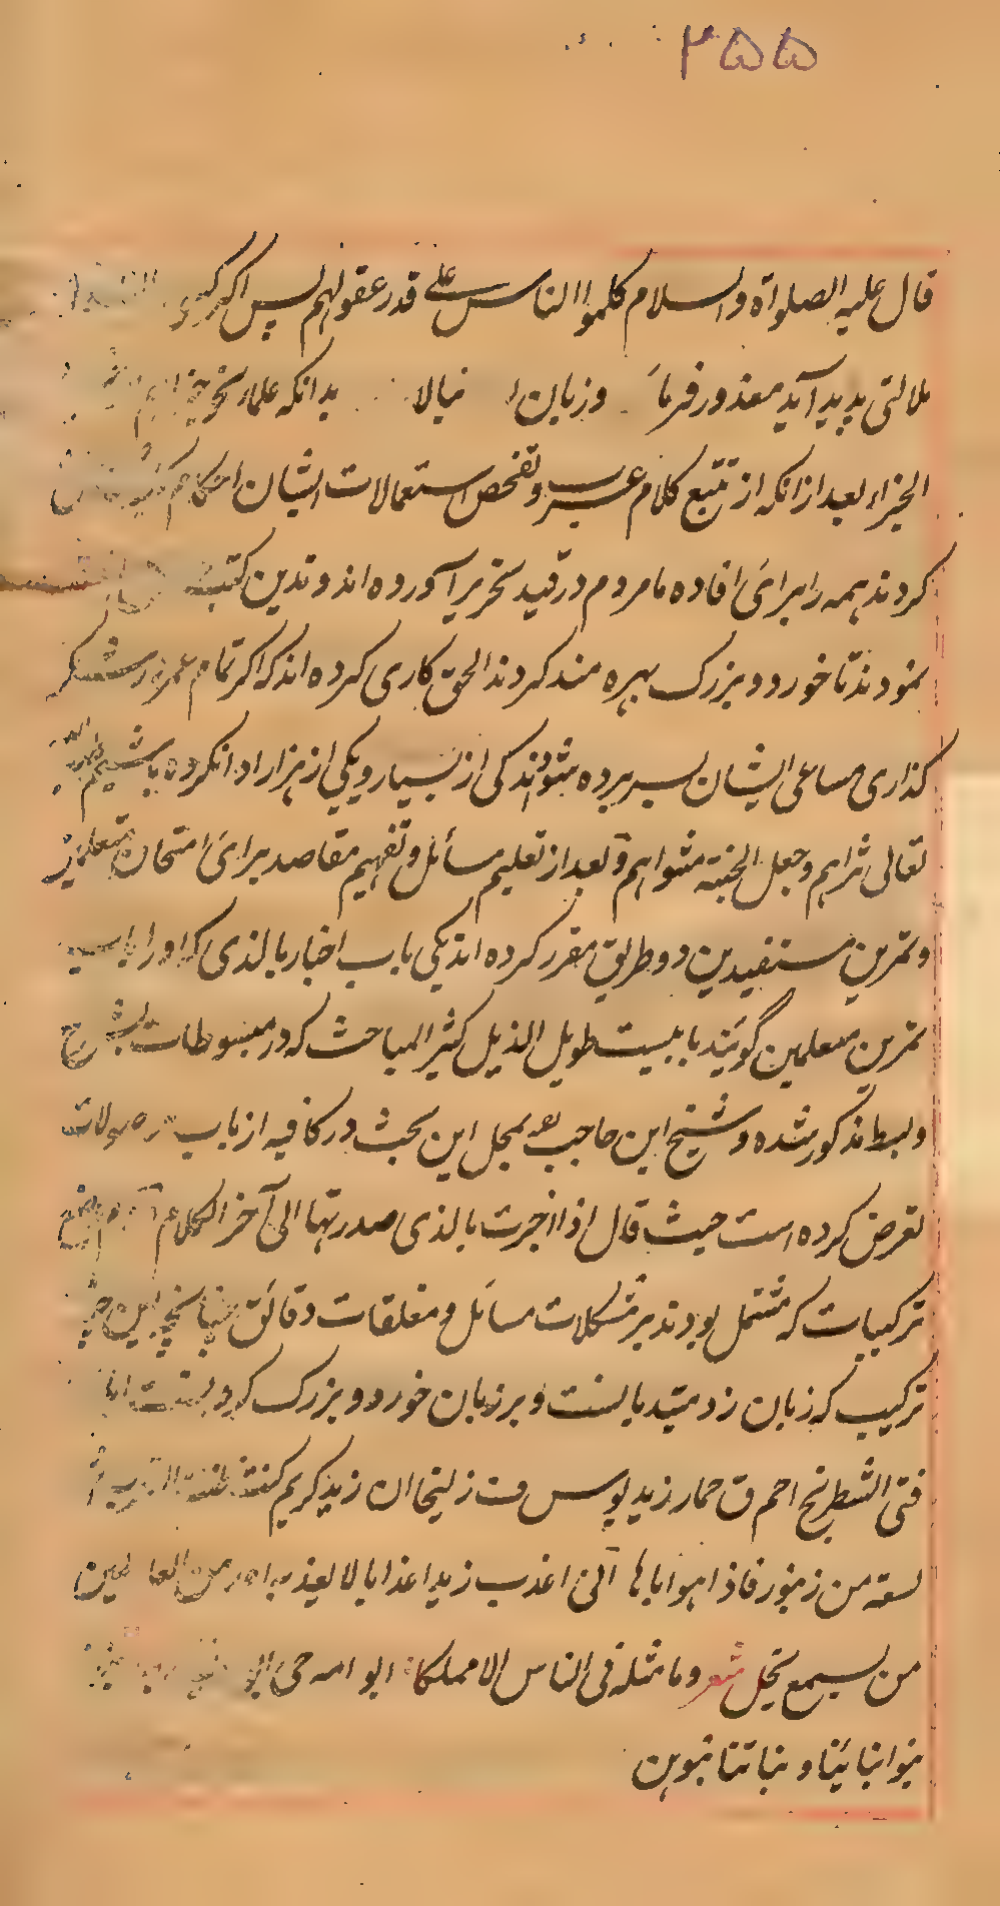 ۲۵۵
قال علیه الصلواة والسلام کلموا الناس علی قدر عقولهم پس اکر
ملالتی پدید آید معذور فرما وزبان بدانکه علماء نحو
الجزاء بعد از انکه از تتبع کلام عرب و تفحص استعمالات ایشان احکام
کردند همه را برای افاده ما مردم در قید تحریر آورده اند و تدین کتب
نمودند تا خورد و بزرک بهره مند کردند الحق کاری کرده اند که اکر تمام عمر در شکر
کذاری مساعی ایشان بسر برده شود اندکی از بسیار و یکی از هزار ادا نکرده باشیم
تعالی ثراهم وجعل الجنة مثواهم و بعد از تعلیم مسائل و تفهیم مقاصد برای امتحان متعلمین
و تمرین مستفیدین دو طریق مقرر کرده اند یکی باب اخبار بالذی که او را باب
تمرین معلمین کویند بابیست طویل الذیل کثیر المباحث که در مبسوطات بشرح
و بسط مذکور شده و شیخ ابن حاجب بمجل این بحث در کافیه از باب موصولات
تعرض کرده است حیث قال اذا اخبرت بالذی صدرتها الی آخر الکلام
ترکیبات که مشتمل بودند بر مشکلات مسائل و مغلقات دقائق چنانچه این چند
ترکیب که زبان زد مبتدیا لست و بر زبان خورد و بزرک کرد
فتی الشطرنج احم ق حمار زید یوسس فت زلیخا ان زید کریم کنت
لسعة من زنبور فاذا هو ایاها انی اعذب زیدا عذابا لا اعذبه احد من العالمین
من یسمع یخل شعر وما مثله فی الناس الا مملکا ابو امه حی ابو
بنوا ابنائنا و بناتنا بنوهن